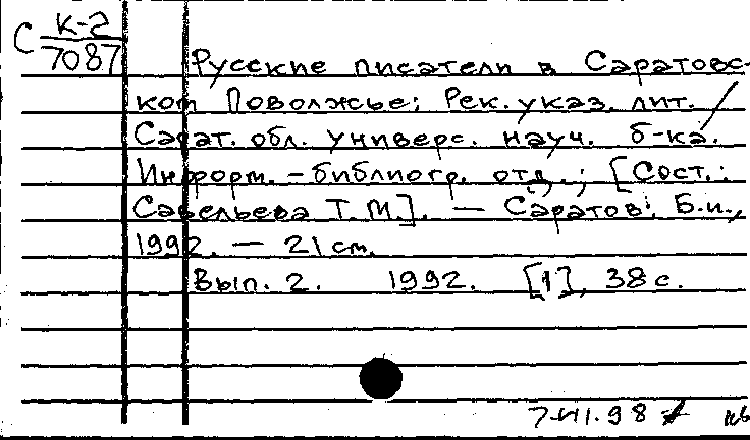 С К-2
7087
Русские писатели в Саратовс-
ком Поволжье: Рек. указ. лит. /
Сарат. обл. универс. науч. б-ка.
Информ. - библиогр. отд.; [Сост.:
Савельева Т.М.]. — Саратов: Б.и.,
1992. — 21 см.
Вып. 2. 1992. [1], 38 с.